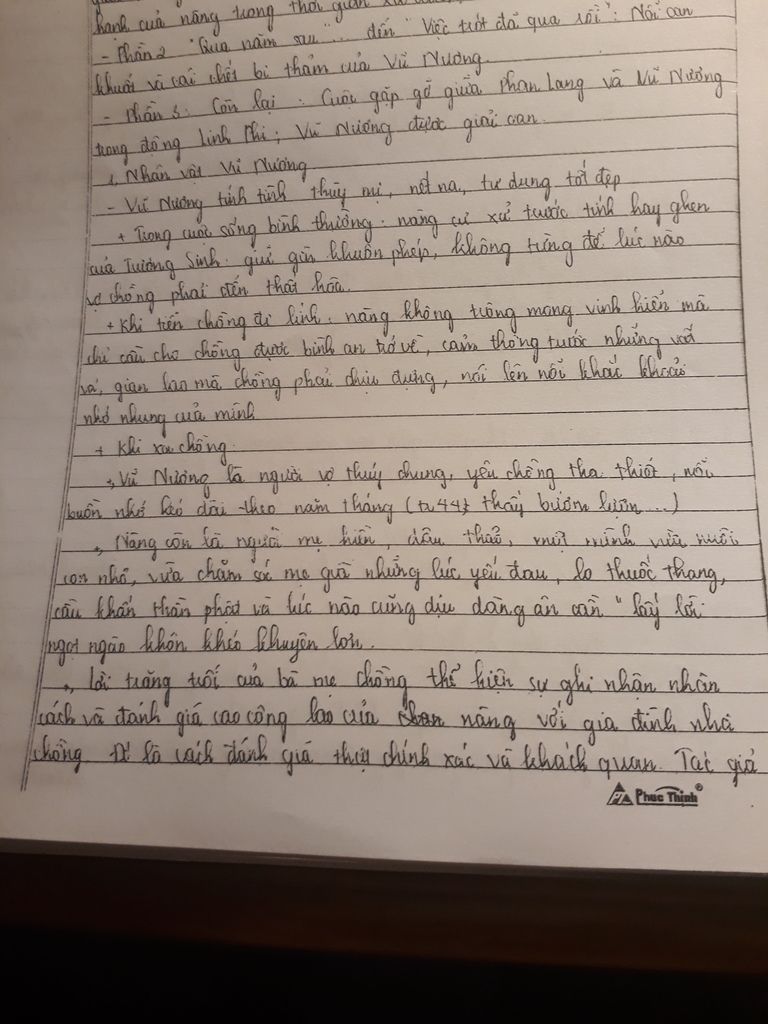 hạnh của nàng trong thời gian xa
- Phần 2 "Qua năm sau" ... đến "Việc trót đã qua rồi": Nỗi oan
khuất và cái chết bi thảm của Vũ Nương.
- Phần 3: Còn lại: Cuộc gặp gỡ giữa Phan Lang và Vũ Nương
trong động Linh Phi; Vũ Nương được giải oan.
1, Nhân vật Vũ Nương
- Vũ Nương tính tình thùy mị, nết na, tư dung tốt đẹp
+ Trong cuộc sống bình thường: nàng cư xử trước tính hay ghen
của Trương Sinh: giữ gìn khuôn phép, không từng để lúc nào
vợ chồng phải đến thất hòa.
+ Khi tiễn chồng đi lính: nàng không trông mong vinh hiển mà
chỉ cầu cho chồng được bình an trở về, cảm thông trước những vất
vả, gian lao mà chồng phải chịu đựng, nói lên nỗi khắc khoải
nhớ nhung của mình
+ Khi xa chồng:
, Vũ Nương là người vợ thủy chung, yêu chồng tha thiết, nỗi
buồn nhớ kéo dài theo năm tháng (tr44: thấy bướm lượn ...)
, Nàng còn là người mẹ hiền, dâu thảo, một mình vừa nuôi
con nhỏ, vừa chăm sóc mẹ già những lúc yếu đau, lo thuốc thang,
cầu khấn thần phật và lúc nào cũng dịu dàng ân cần "lấy lời
ngọt ngào khôn khéo khuyên lơn.
, Lời trăng trối của bà mẹ chồng thể hiện sự ghi nhận nhân
cách và đánh giá cao công lao của nàng với gia đình nhà
chồng. Đó là cách đánh giá thật chính xác và khách quan. Tác giả
Phuc Thinh®